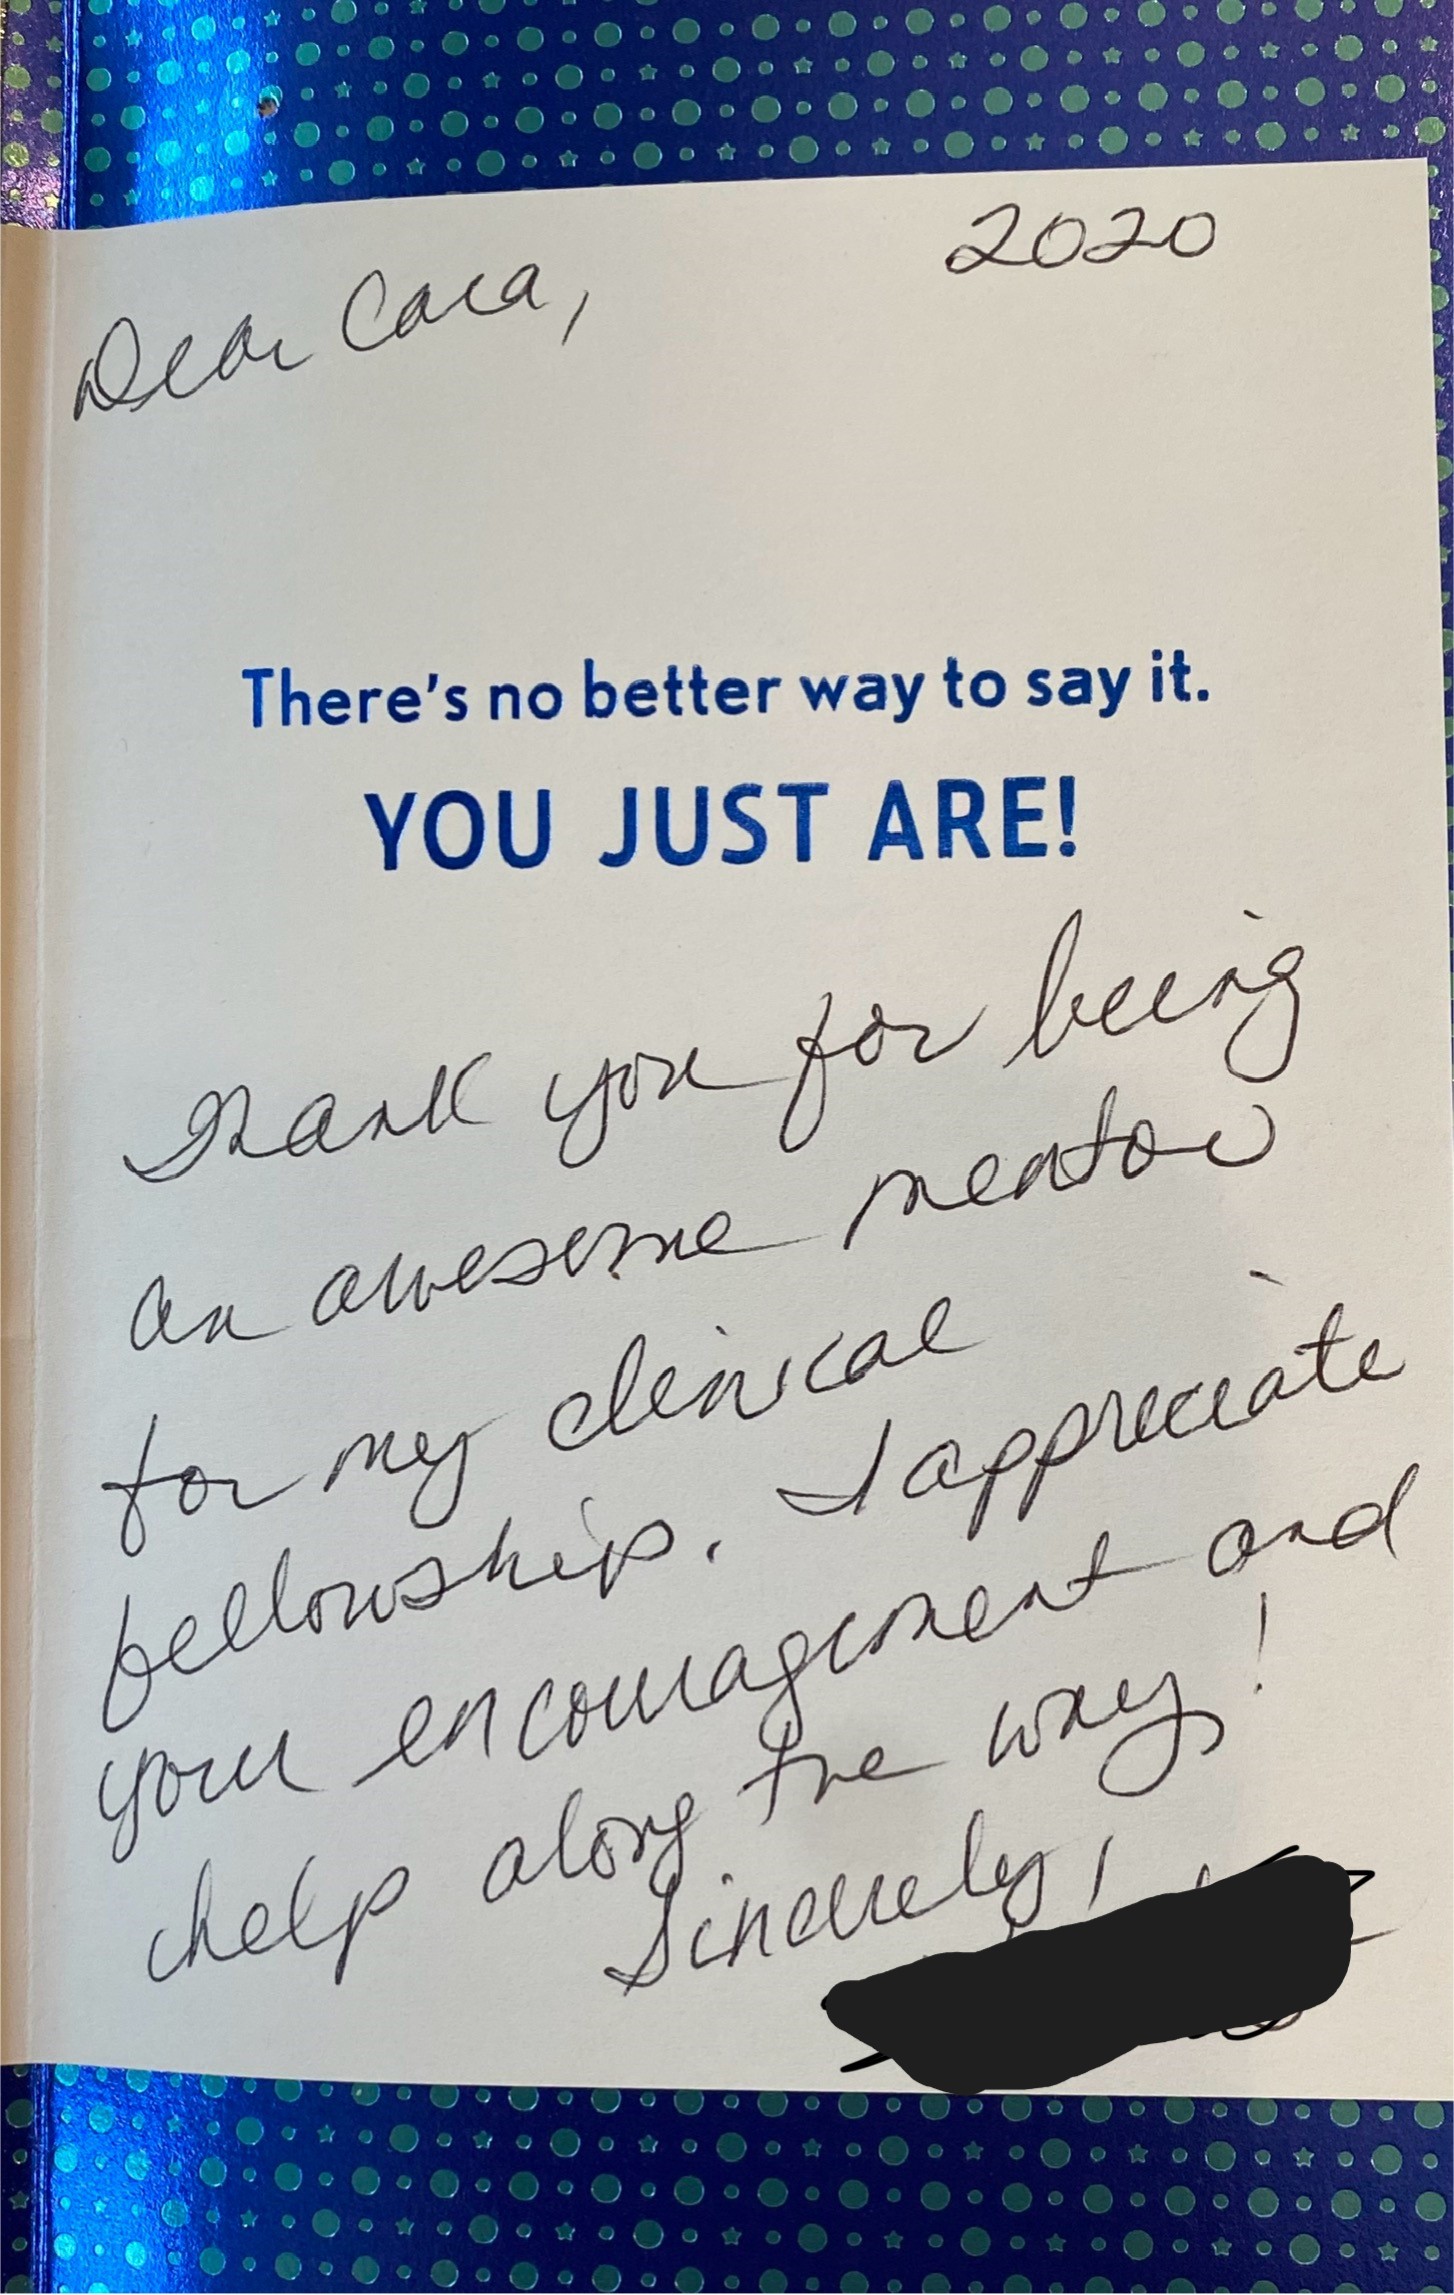 2020
Dear Cara,
There's no better way to say it.
YOU JUST ARE!
Thank you for being
an awesome mentor
for my clinical
fellowship. I appreciate
your encouragement and
help along the way!
Sincerely,